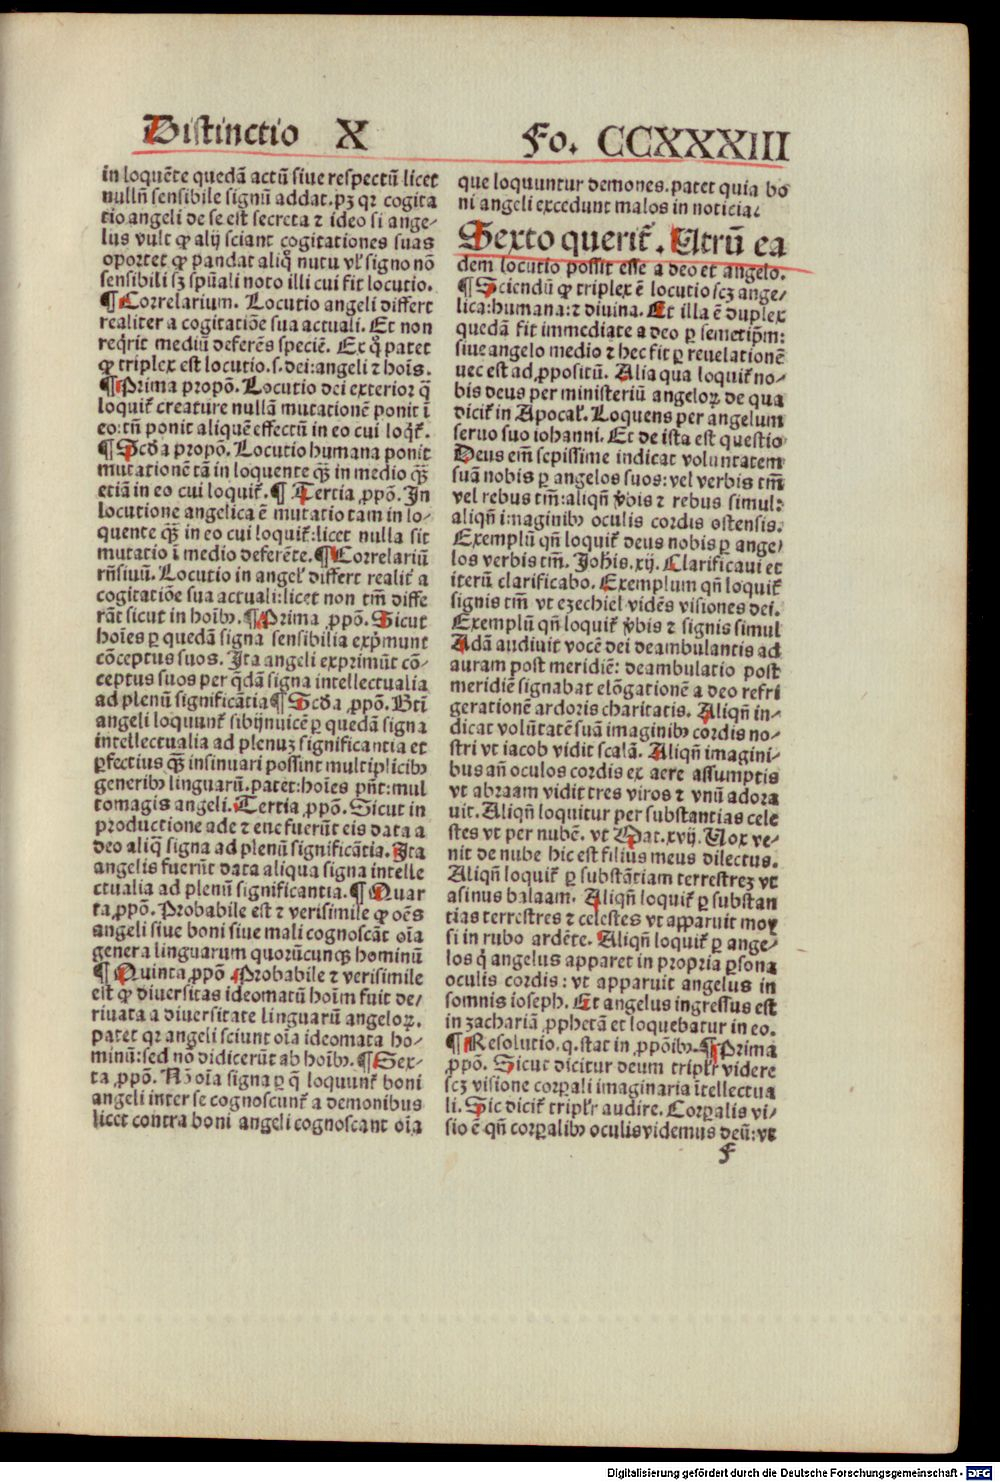 Distinctio X Fo. CCXXXIII
in loquēte quedā actū siue respectū licet
nullū sensibile signū addat. pꝫ qꝛ cogita
tio angeli de se est secreta ⁊ ideo si ange-
lus vult ꝙ alij sciant cogitationes suas
oportet ꝙ pandat aliqͦ nutu vl' signo nō
sensibili sꝫ spūali noto illi cui fit locutio.
¶ Correlarium. Locutio angeli differt
realiter a cogitatiōe sua actuali. Et non
reqͥrit mediū deferēs speciē. Ex qͦ patet
ꝙ triplex est locutio. s. dei: angeli ⁊ hoīs.
¶ Prima propō. Locutio dei exterior q̄
loquit̉ creature nullā mutationē ponit ī
eo: tn̄ ponit aliquē effectū in eo cui loqͥt̉.
¶ Scd̄a propō. Locutio humana ponit
mutationē tā in loquente qͣꝫ in medio qͣꝫ
etiā in eo cui loquit̉. ¶ Tertia ꝓpō. In
locutione angelica ē mutatio tam in lo-
quente qͣꝫ in eo cui loquit̉: licet nulla sit
mutatio ī medio deferēte. ¶ Correlariū
rn̄siuū. Locutio in angel' differt realit̉ a
cogitatiōe sua actuali: licet non tm̄ diffe
rāt sicut in hoībꝰ. ¶ Prima ꝓpō. Sicut
hoīes ꝑ quedā signa sensibilia exp̍munt
cōceptus suos. Ita angeli exprimūt cō-
ceptus suos per q̄dā signa intellectualia
ad plenū significātia ¶ Scd̄a ꝓpō. Btī
angeli loquunt̉ sibijnuicē ꝑ quedā signa
intellectualia ad plenuꝫ significantia et
ꝑfectius qͣꝫ insinuari possint multiplicibꝰ
generibꝰ linguarū. patet: hoīes pn̄t: mul
tomagis angeli. Tertia ꝓpō. Sicut in
productione ade ⁊ eue fuerūt eis data a
deo aliq̄ signa ad plenū significātia. Ita
angelis fuerūt data aliqua signa intelle
ctualia ad plenū significantia. ¶ Quar
ta ꝓpō. Probabile est ⁊ verisimile ꝙ oēs
angeli siue boni siue mali cognoscāt oīa
genera linguarum quorūcunqꝫ hominū
¶ Quinta ꝓpō. Probabile ⁊ verisimile
est ꝙ diuersitas ideomatū hoīm fuit de-
riuata a diuersitate linguarū angeloꝝ.
patet qꝛ angeli sciunt oīa ideomata ho-
minū: sed nō didicerūt ab hoībꝰ. ¶ Sex-
ta ꝓpō. Nō oīa signa ꝑ q̄ loquunt̉ boni
angeli inter se cognoscunt̉ a demonibus
licet contra boni angeli cognoscant oīa
que loquuntur demones. patet quia bo
ni angeli excedunt malos in noticia.
Sexto querit̉. Utrū ea
dem locutio possit esse a deo et angelo.
¶ Sciendū ꝙ triplex ē locutio scꝫ ange-
lica: humana: ⁊ diuina. Et illa ē duplex
quedā fit immediate a deo ꝑ semetip̄m:
siue angelo medio ⁊ hec fit ꝑ reuelationē
nec est ad ꝓpositū. Alia qua loquit̉ no-
bis deus per ministeriū angeloꝝ de qua
dicit̉ in Apocal'. Loquens per angelum
seruo suo iohanni. Et de ista est questio
Deus em̄ sepissime indicat voluntatem
suā nobis ꝑ angelos suos: vel verbis tm̄
vel rebus tm̄: aliqn̄ v̓bis ⁊ rebus simul:
aliqn̄ imaginibꝰ oculis cordis ostensis.
Exemplū qn̄ loquit̉ deus nobis ꝑ ange-
los verbis tm̄. Joh̄is. xij. Clarificaui et
iterū clarificabo. Exemplum qn̄ loquit̉
signis tm̄ vt ezechiel vidēs visiones dei.
Exemplū qn̄ loquit̉ v̓bis ⁊ signis simul
Adā audiuit vocē dei deambulantis ad
auram post meridiē: deambulatio post
meridiē signabat elōgationē a deo refri
gerationē ardoris charitatis. Aliqn̄ in-
dicat volūtatē suā imaginibꝰ cordis no-
stri vt iacob vidit scalā. Aliqn̄ imagini-
bus an̄ oculos cordis ex aere assumptis
vt abraam vidit tres viros ⁊ vnū adora
uit. Aliqn̄ loquitur per substantias cele
stes vt per nubē. vt Mat. xvij. Uox ve-
nit de nube hic est filius meus dilectus.
Aliqn̄ loquit̉ ꝑ substātiam terrestreꝫ vt
asinus balaam. Aliqn̄ loquit̉ ꝑ substan
tias terrestres ⁊ celestes vt apparuit moy
si in rubo ardēte. Aliqn̄ loquit̉ ꝑ ange-
los qͥ angelus apparet in propria ꝑsona
oculis cordis: vt apparuit angelus in
somnis ioseph. Et angelus ingressus est
in zachariā ꝓphetā et loquebatur in eo.
¶ Resolutio. q. stat in ꝓpōibꝰ. ¶ Prima
ꝓpō. Sicut dicitur deum tripl'r videre
scꝫ visione corꝑali imaginaria ītellectua
li. Sic dicit̉ tripl'r audire. Corꝑalis vi-
sio ē qn̄ corꝑalibꝰ oculis videmus deū: vt
f
Digitalisierung gefördert durch die Deutsche Forschungsgemeinschaft - DFG